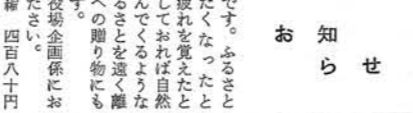 お知
らせ
です。ふるさと
たくなったと
疲れを覚えたと
しておれば自然
んでくるような
るさとを遠く離
への贈り物にも
す。
役場企画係にお
ださい。
四百八十円